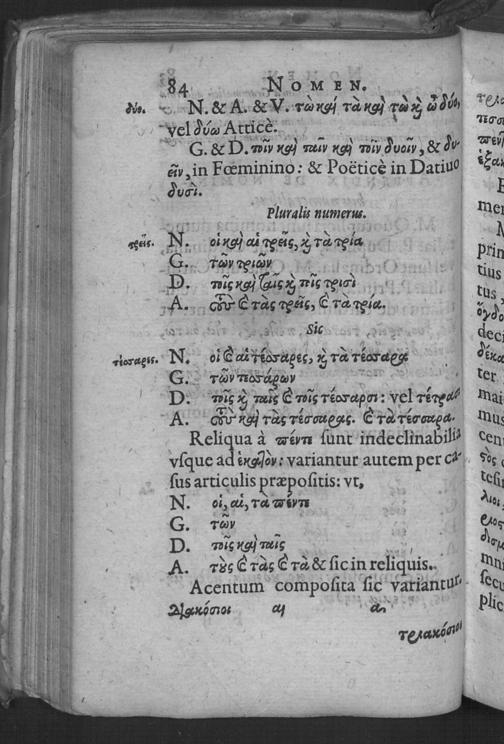 84 NOMEN.
δύο. N. & A. & V. τὼ καὶ τὰ καὶ τὼ κ̀ ὦ δύο,
vel δύω Atticè.
G. & D. τοῖν καὶ ταῖν καὶ τοῖν δυοῖν, & δυ-
εῖν, in Fœminino: & Poëticè in Datiuo
δυσὶ.
Pluralis numerus.
τρεῖς. N. οἱ καὶ αἱ τρεῖς, κ̀ τὰ τρία
G. τῶν τριῶν
D. τοῖς καὶ ταῖς κ̀ τοῖς τρισὶ
A. τοὺς ϗ τὰς τρεῖς, ϗ τὰ τρία.
Sic
τέσσαρες. N. οἱ ϗ αἱ τέσσαρες, κ̀ τὰ τέσσαρα
G. τῶν τεσσάρων
D. τοῖς κ̀ ταῖς ϗ τοῖς τέσσαρσι: vel τέτρασι
A. τοὺς καὶ τὰς τέσσαρας. ϗ τὰ τέσσαρα.
Reliqua à πέντε ſunt indeclinabilia
vſque ad ἑκατὸν: variantur autem per ca-
ſus articulis præpoſitis: vt,
N. οἱ, αἱ, τὰ πέντε
G. τῶν
D. τοῖς καὶ ταῖς
A. τοὺς ϗ τὰς ϗ τὰ & ſic in reliquis.
Acentum compoſita ſic variantur.
Διακόσιοι αι α.
τριακόσιοι